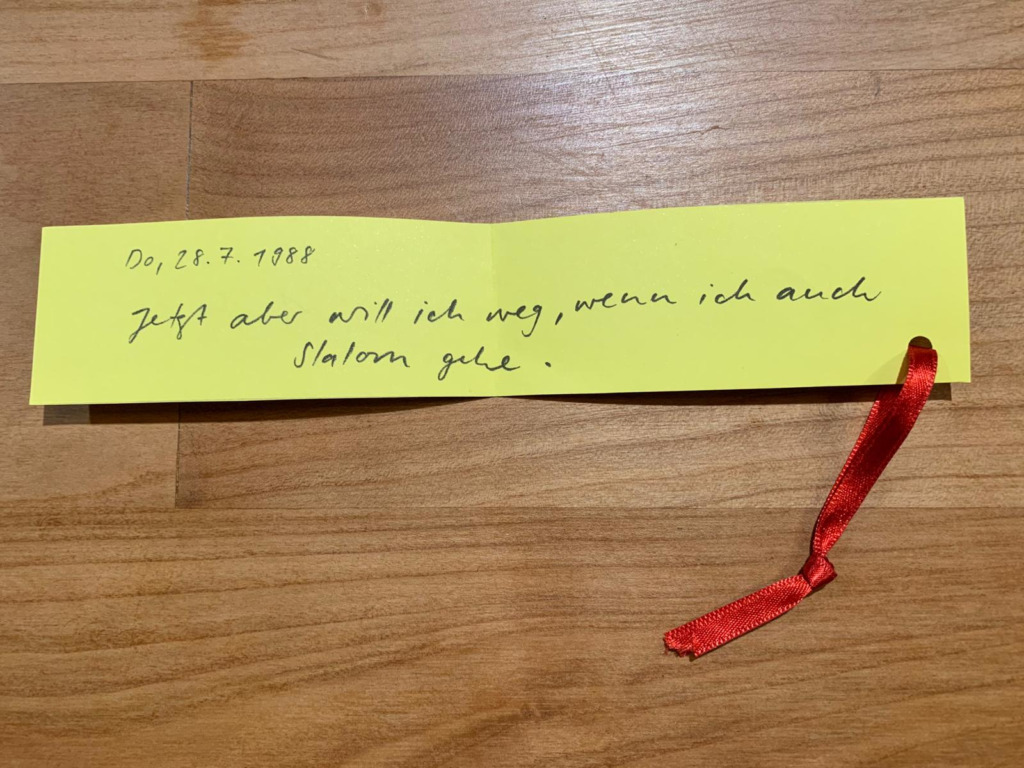 Do, 28.7.1988
Jetzt aber will ich weg, wenn ich auch
Slalom gehe.